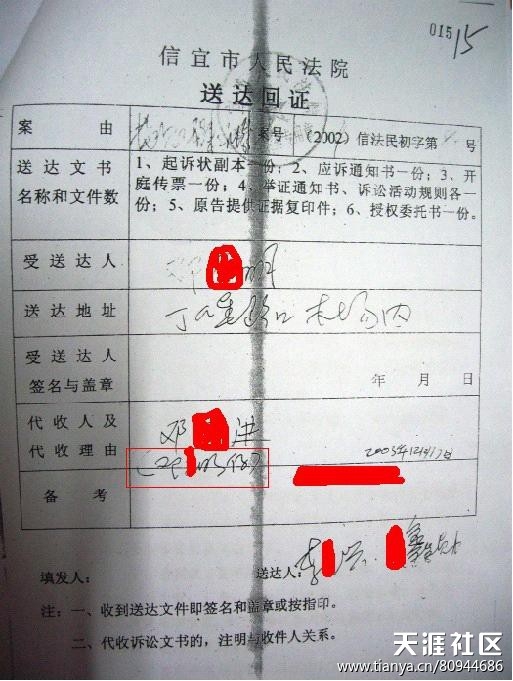 01515
信宜市人民法院
送达回证
案由 案号 (2002)信法民初字第 号
送达文书名称和文件数
1、起诉状副本一份；2、应诉通知书一份；3、开
庭传票一份；4、举证通知书、诉讼活动规则各一
份；5、原告提供证据复印件；6、授权委托书一份。
受送达人 邓 明
送达地址
受送达人
签名与盖章 年 月 日
代收人及
代收理由 邓
2003年12月17日
备考
填发人： 送达人：李
注：一、收到送达文件即签名和盖章或按指印。
二、代收诉讼文书的，注明与收件人关系。
天涯社区
www.tianya.cn/80944686